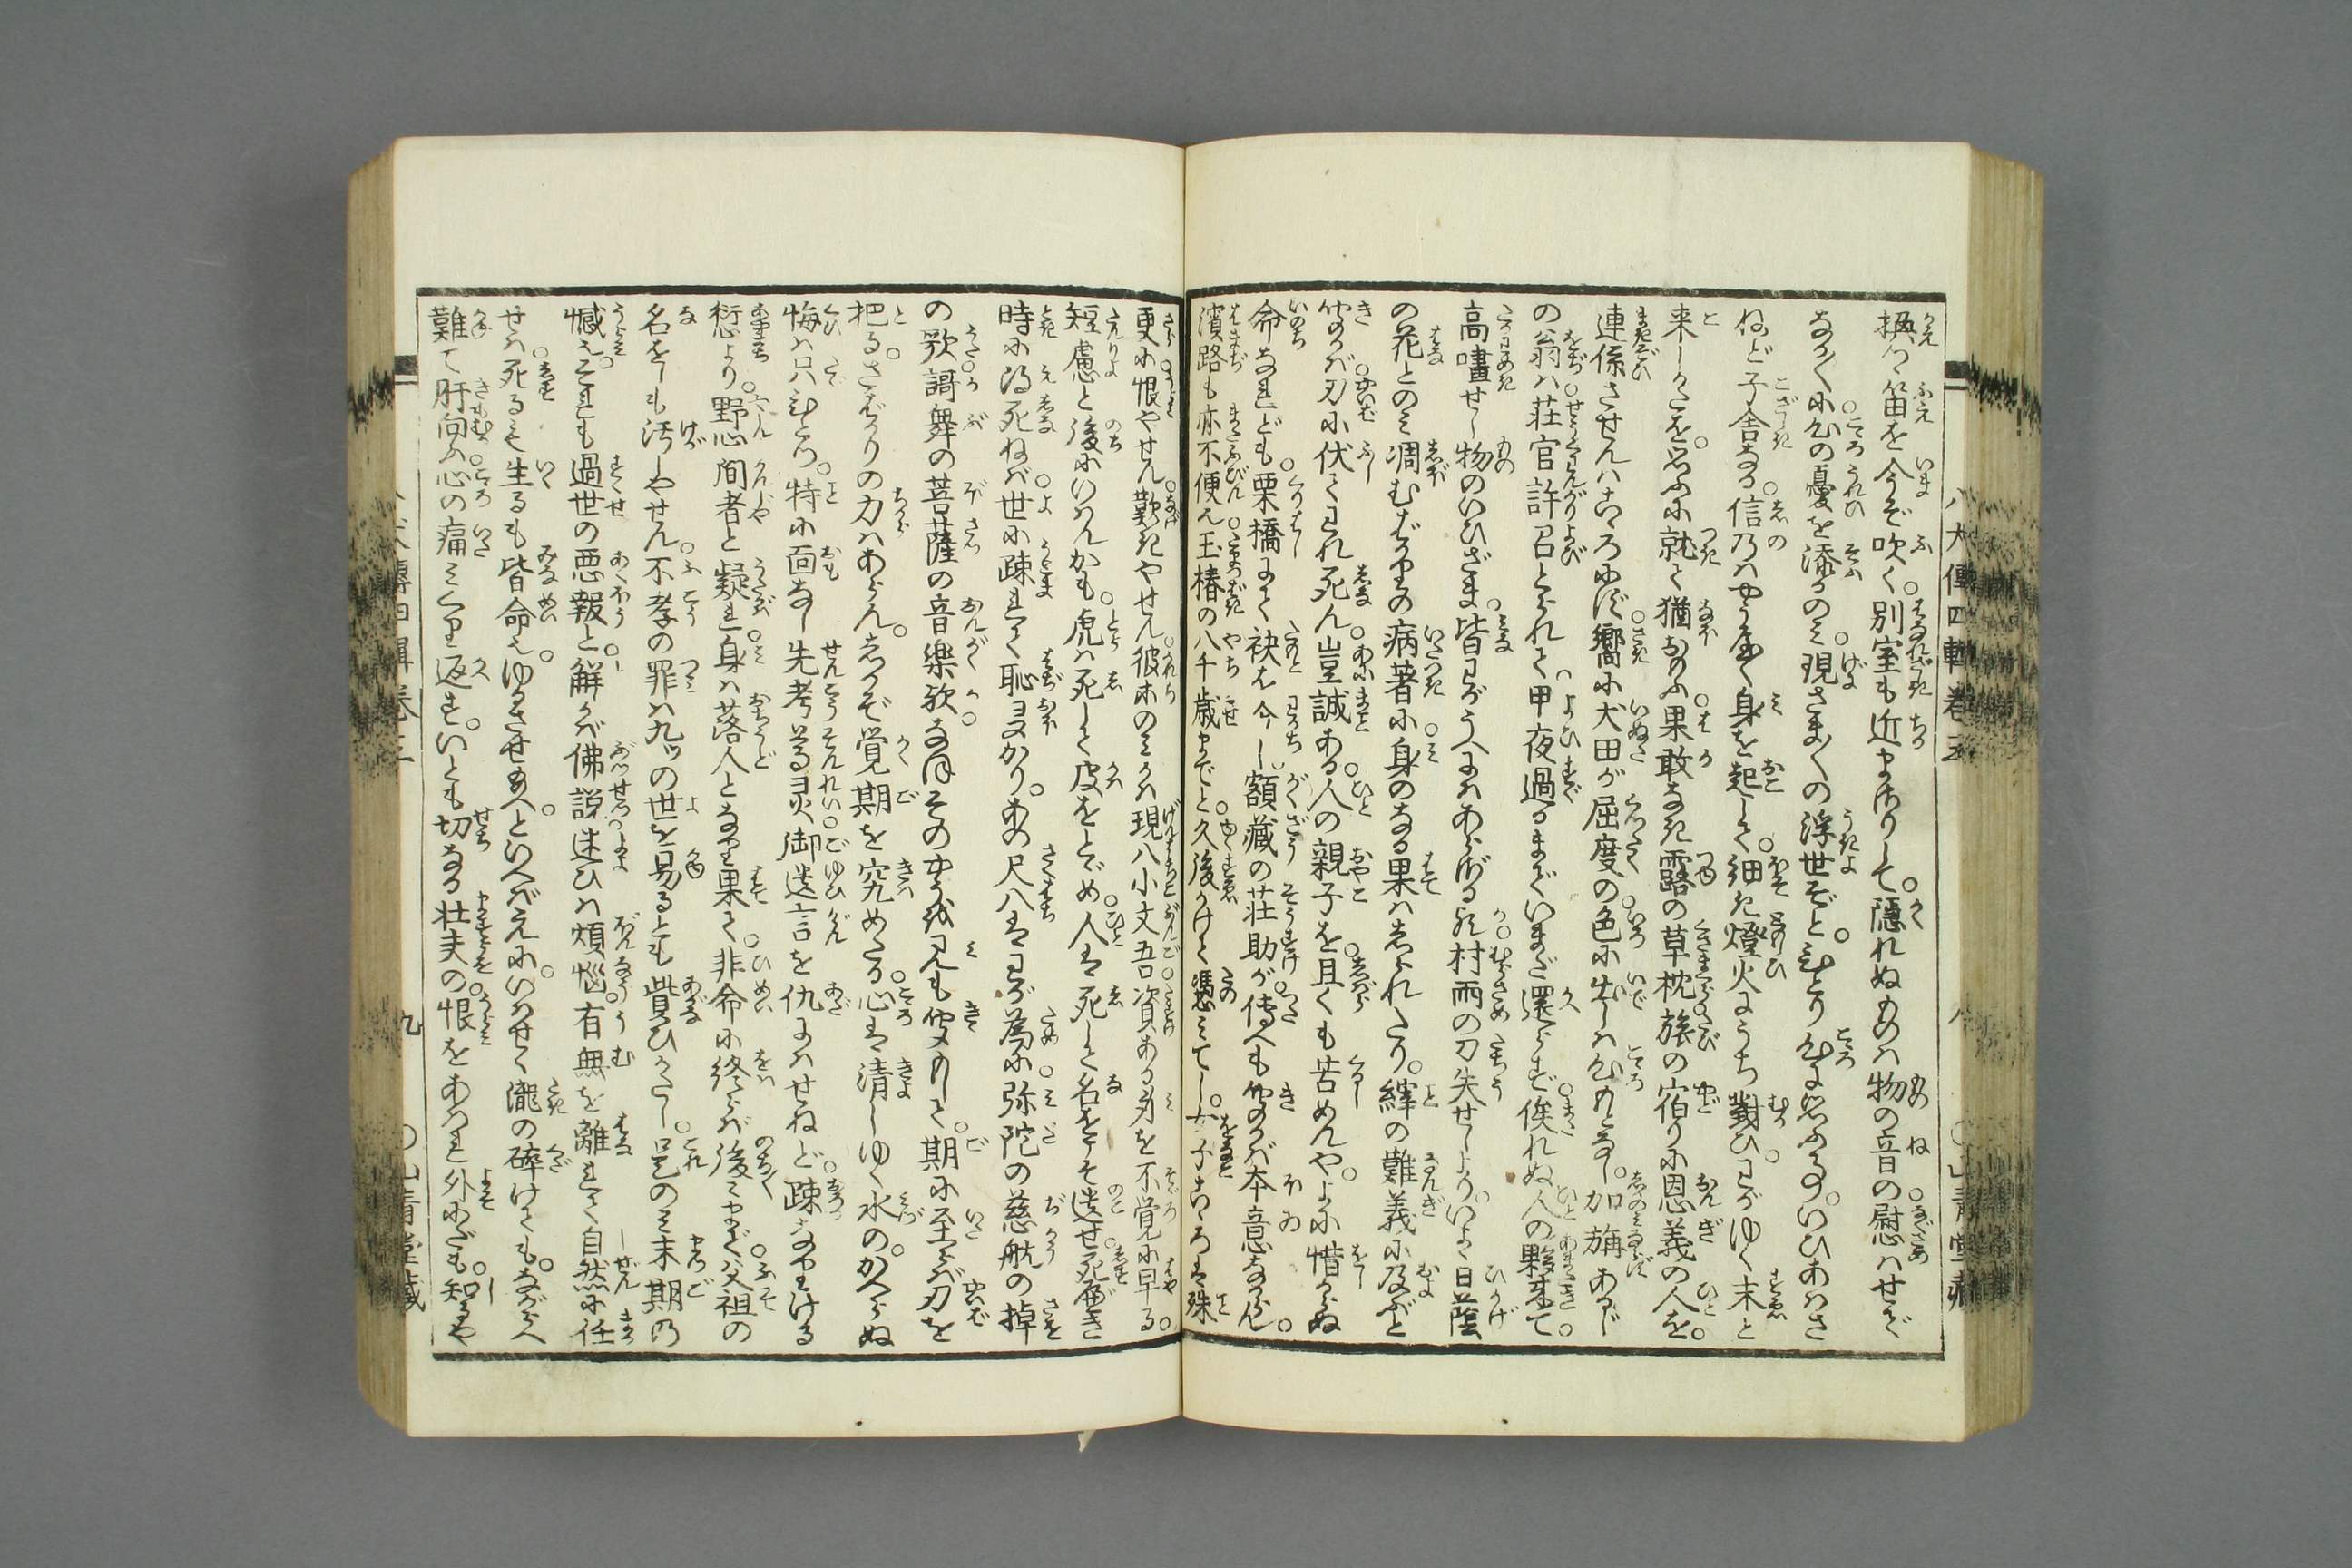 換て笛を今ぞ吹く。別室も近まほりして。隠れぬものは物の音の慰はせで
なか〳〵に心の憂を添るのみ。現さま〴〵の浮世ぞと。ひとり心に思ふ事。いひあはさ
ねど子舎なる。信乃はやうやく身を起して。細き燈火にうち對ひ。わがゆく末と
来しかたを。思ふに就て猶おもふ。果敢なき露の草枕旅の宿りに恩義の人を。
連係させんはこゝろにず。嚮に犬田が屈度の色に出しは心もとなし。加旃あるじ
の翁は荘官許召とられて。甲夜過るまでいまだ還らず。俟れぬ人の夥來て。
高嘯せし物のいひざま。皆わがうへにはあらざる歟。村雨の刀失せしより。いよゝ日蔭
の花とのみ凋むばかりの病著に。身のなる果はしられたり。縡の難義に及ぶと
きかば刃に伏てわれ死ん。豈誠ある。人の親子を。且くも苦めんや。よに惜からぬ
命なれども。栗橋にて袂を今し額藏の荘助が。傳へも
濱路も亦不便也。玉椿の八千歳までと。久後かけて憑みてし。女子こゝろは殊
更に。恨やせん。歎きやせん。彼ホのみかは現八小文吾。資ある身を不覚に早る。
短慮と後にいはんかも。虎は死して皮をとゞめ。人は死して名をこそ遺せ。死べき
時に得死ねば。世に疎まれて恥多かり。あの尺八はわが為に。弥陀の慈航の棹
の歌謌舞の菩薩の音樂歟。なほその中
把る。さばかりの力はあらん。しかぞ覚期を究めたる。心は清しゆく水の。かへらぬ
悔は只ひとつ。特に面なし先考尊靈。御遺言を仇にはせねど。疎なりける
愆より。野心間者と疑れ。身は落人となり果て。非命に終らば後々まで。父祖の
名をしも汚しやせん。不孝の罪は九ツの世を易るとも貲ひがたし。是のみ末期の
憾也。それも過世の悪報と。解かば佛説迷ひは煩惱。有無を離れて自然に任
せば。死るも生るも皆命也。ゆるさせ給へといへばえに。いはせて瀧の碎けても。ながらへ
難て肝向ふ。心の痛みくり返す。いとも切なる壮夫の。恨をあはれ外にだも。知るや
八犬傳四輯卷三
八
〇山青堂藏
九